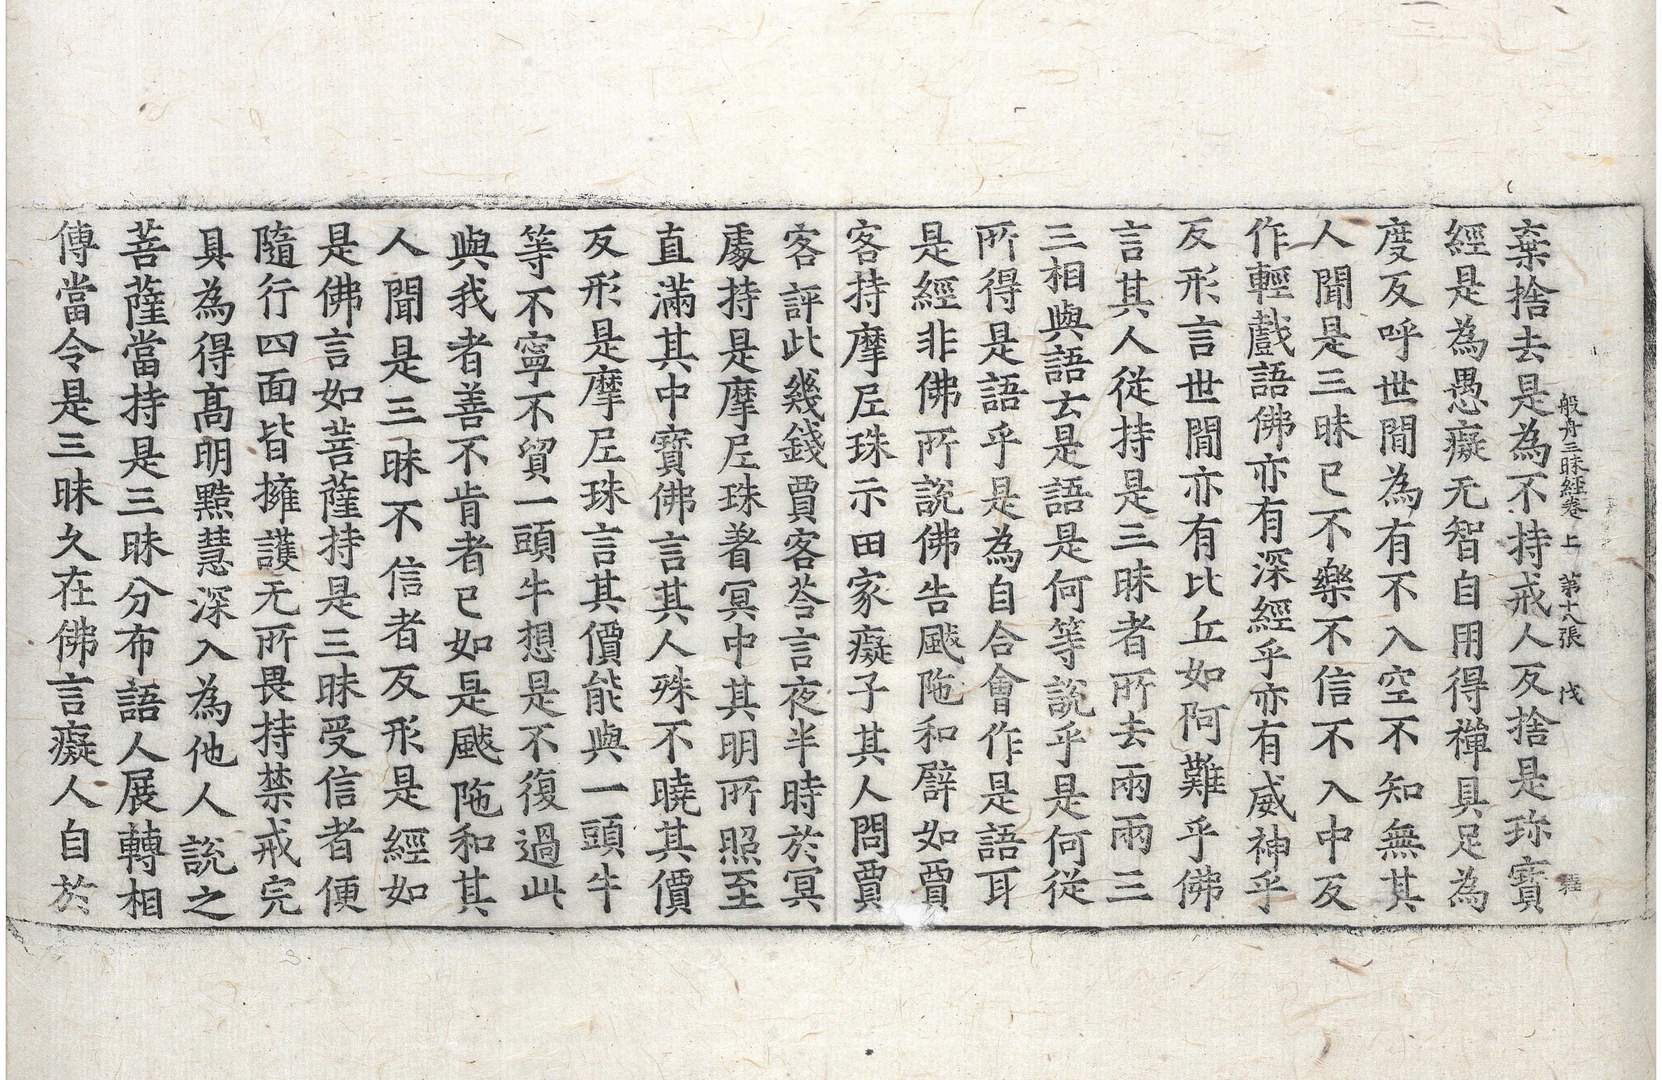 般舟三昧經卷上　第十八張　戊
棄捨去是為不持戒人反捨是珎寶
經是為愚癡无智自用得禪具足為
度反呼世間為有不入空不知無其
人聞是三昧已不樂不信不入中反
作輕戲語佛亦有深經乎亦有威神乎
反形言世間亦有比丘如阿難乎佛
言其人從持是三昧者所去兩兩三
三相與語云是語是何等說乎是何從
所得是語乎是為自合會作是語耳
是經非佛所說佛告颰陁和譬如賈
客持摩尼珠示田家癡子其人問賈
客評此幾錢賈客荅言夜半時於冥
處持是摩尼珠著冥中其明所照至
直滿其中寶佛言其人殊不曉其價
反形是摩尼珠言其價能與一頭牛
等不寧不貿一頭牛想是不復過此
與我者善不肯者已如是颰陁和其
人聞是三昧不信者反形是經如
是佛言如菩薩持是三昧受信者便
隨行四面皆擁護无所畏持禁戒完
具為得高明黠慧深入為他人說之
菩薩當持是三昧分布語人展轉相
傳當令是三昧久在佛言癡人自於